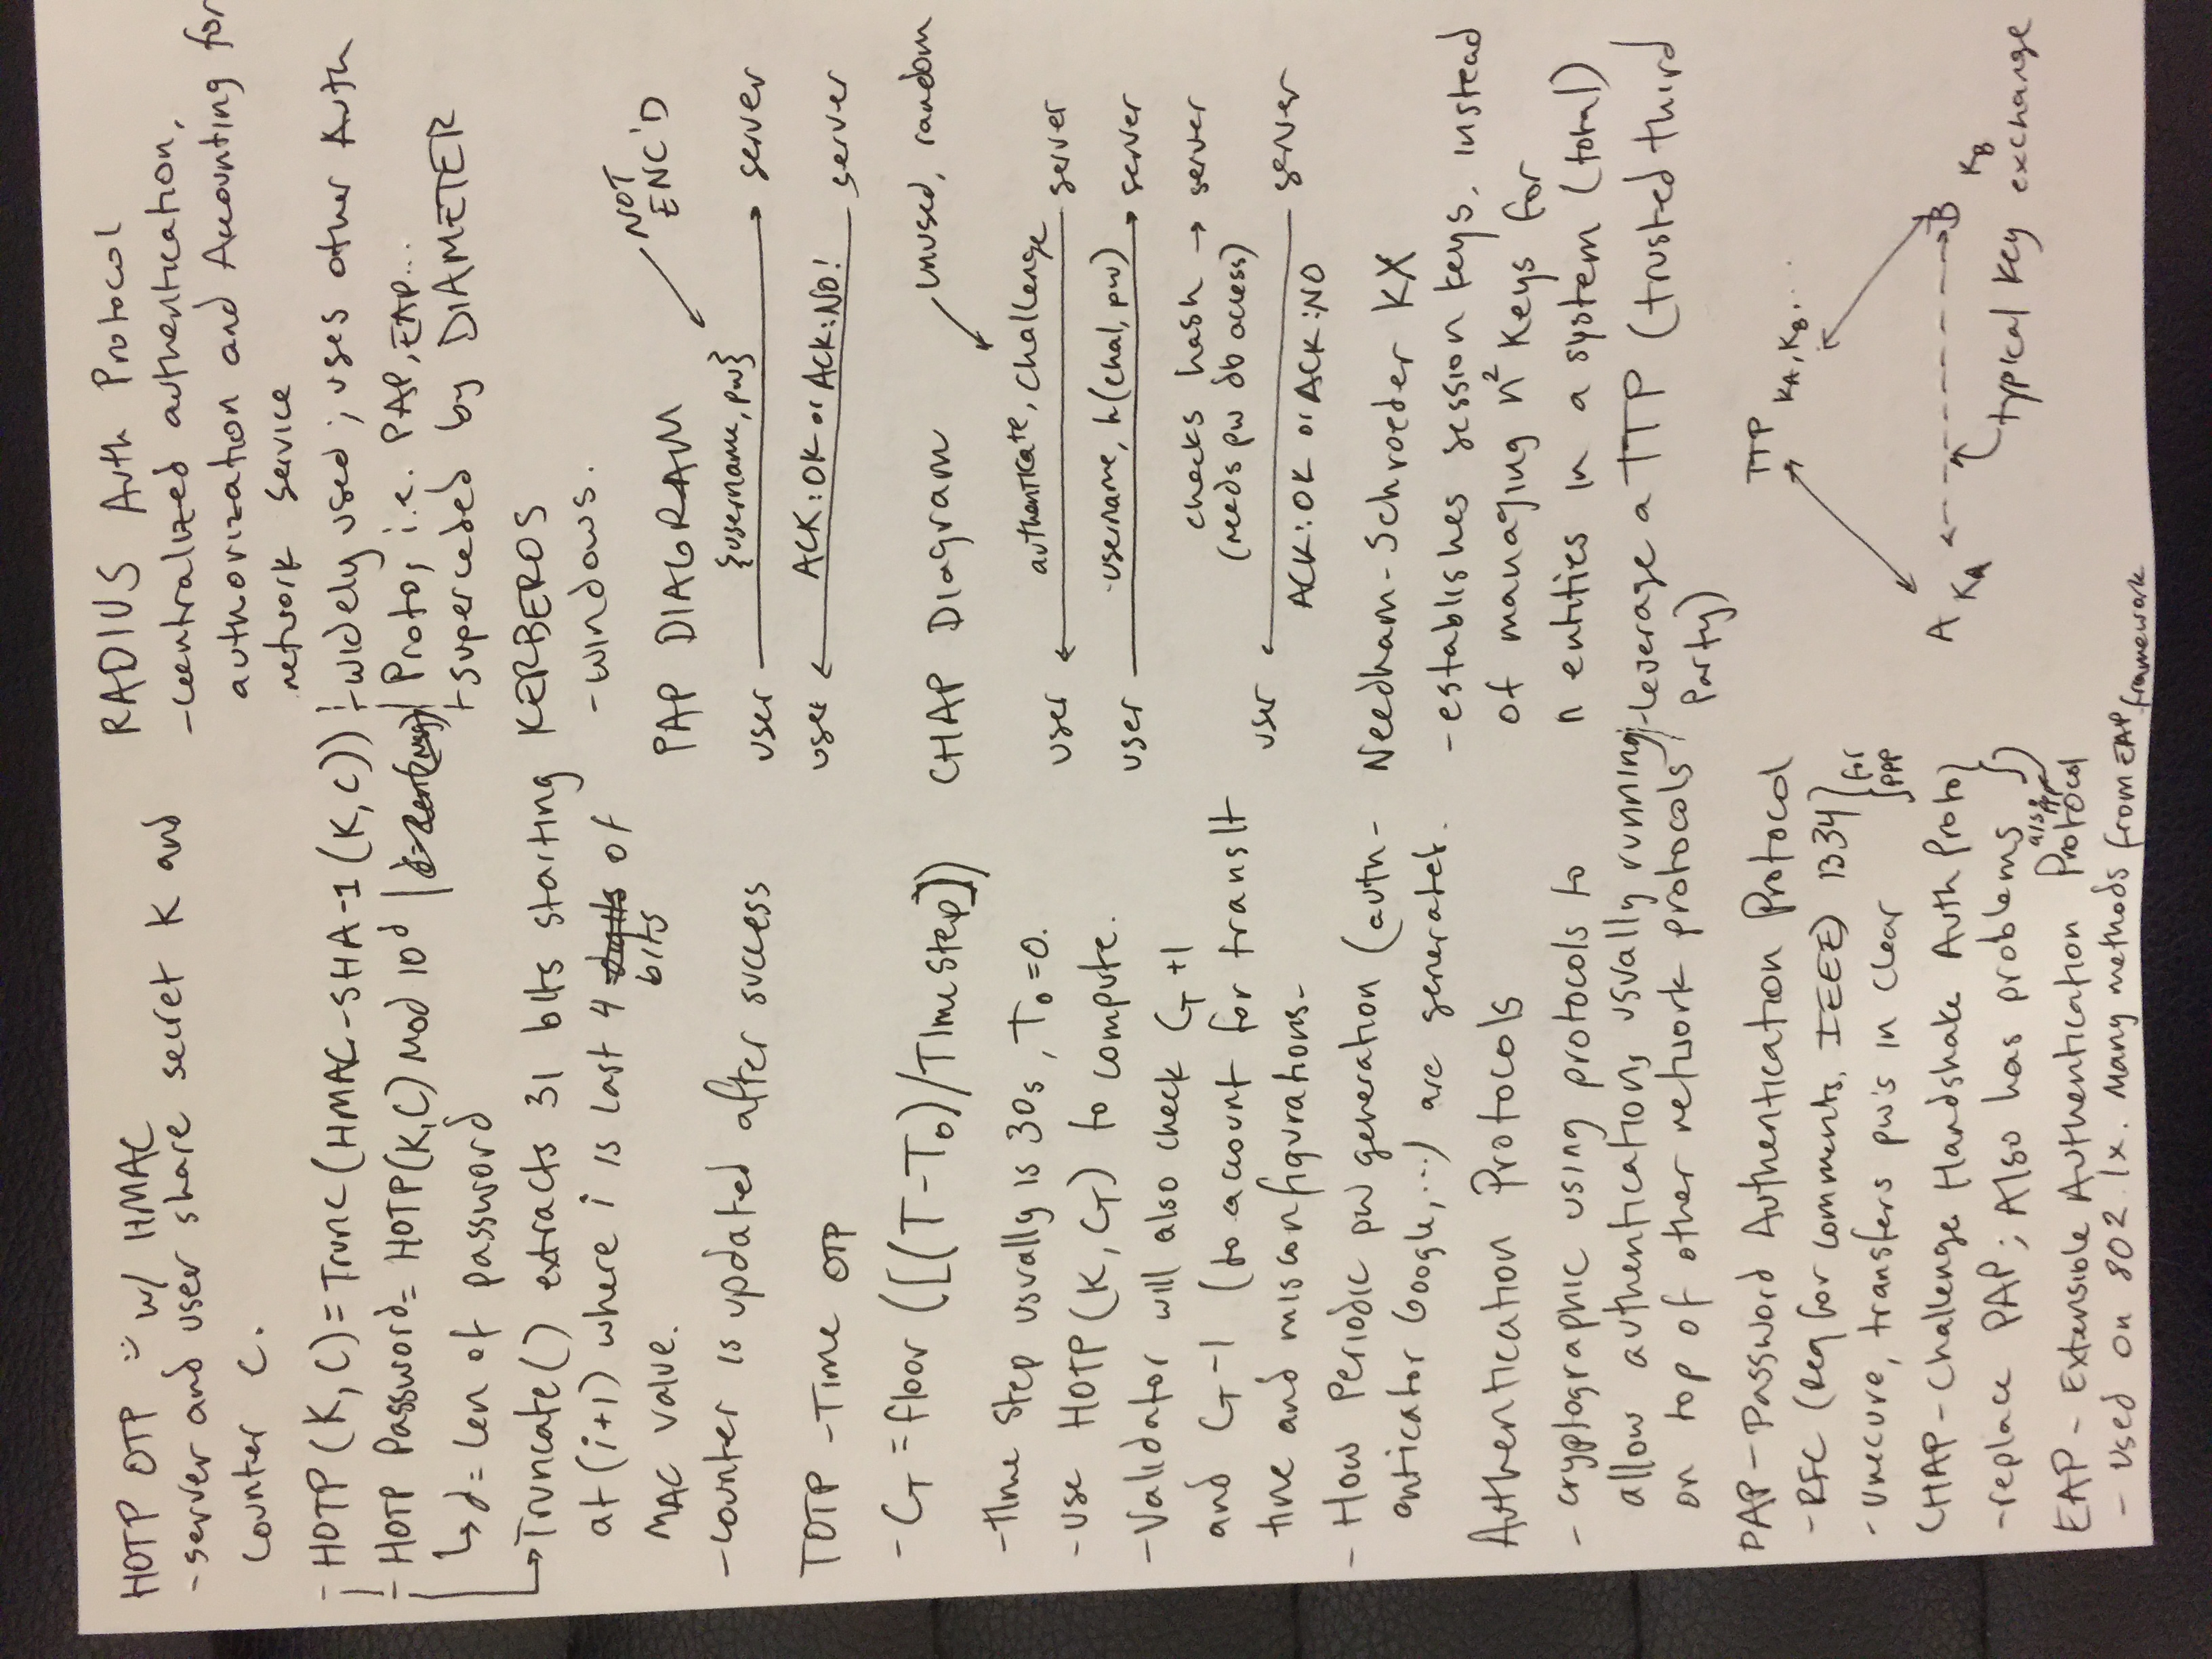 HOTP OTP w/ HMAC
- server and user share secret K and
counter C.
- HOTP(K, C) = Trunc(HMAC-SHA-1(K, C))
- HOTP Password = HOTP(K, C) Mod 10^d |
↳ d = len of password
→ Truncate() extracts 31 bits starting
at (i+1) where i is last 4 digits of
bits
MAC value.
- counter is updated after success
TOTP - Time OTP
- CT = floor([(T-T0)/Time Step])
- time step usually is 30s, T0=0.
- use HOTP(K, CT) to compute.
- Validator will also check CT+1
and CT-1 (to account for transit
time and misconfigurations.
- How Periodic pw generation (auth-
enticator Google, ...) are generated.
Authentication Protocols
- cryptographic using protocols to
allow authentication, usually running
on top of other network protocols
PAP - Password Authentication Protocol
- RFC (Req for comments, IEEE) 1334
- unecure, transfers pw's in clear
for
PPP
CHAP - Challenge Handshake Auth Proto
- replace PAP; Also has problems
also PPP
EAP - Extensible Authentication Protocol
- used on 802.1x. Many methods from EAP framework
RADIUS Auth Protocol
- centralized authentication,
authorization and Accounting for
network service
- widely used; uses other Auth
Proto, i.e. PAP, EAP...
- superceded by DIAMETER
KERBEROS
- windows.
PAP DIAGRAM
NOT
ENC'D
{username, pw}
user → server
ACK:OK or ACK:NO!
user ← server
CHAP Diagram
unused, random
authenticate, challenge
user ← server
username, h(chal, pw)
user → server
checks hash → server
(needs pw db access)
user ← server
ACK:OK or ACK:NO
Needham-Schroeder KX
- establishes session keys, instead
of managing n² keys for
n entities in a system (total)
- leverage a TTP (trusted third
Party)
TTP KA, KB, ...
A B
KA KB
typical key exchange